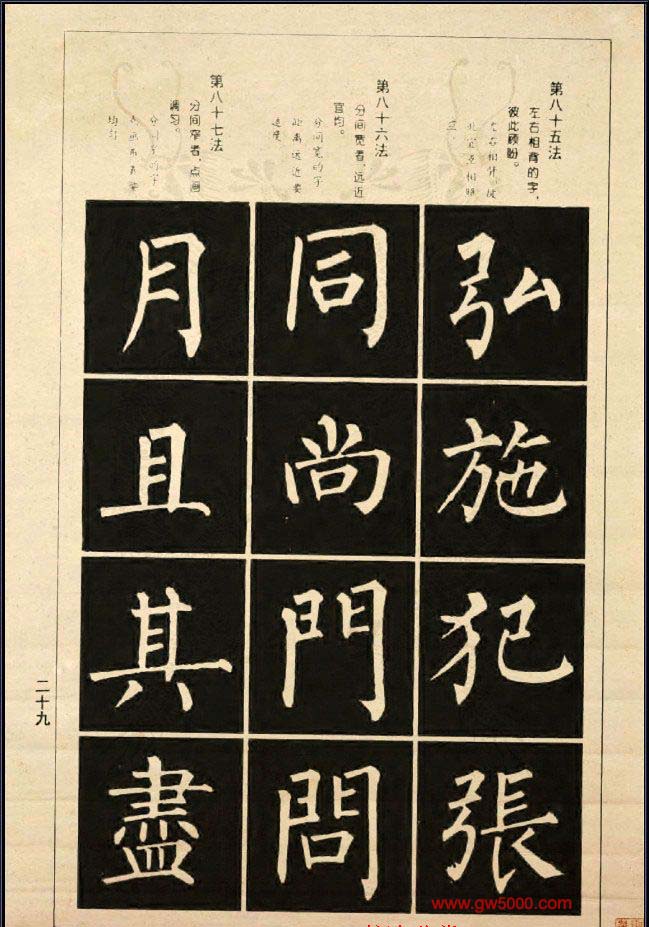 第八十五法
左右相背的字，
彼此顾盼。
弘
施
犯
張
第八十六法
分间宽者，远近
宜均。
分间宽的字
距离远近要
适度
同
尚
門
問
第八十七法
分间窄者，点画
调匀。
月
且
其
盡
二十九
www.gw5000.com